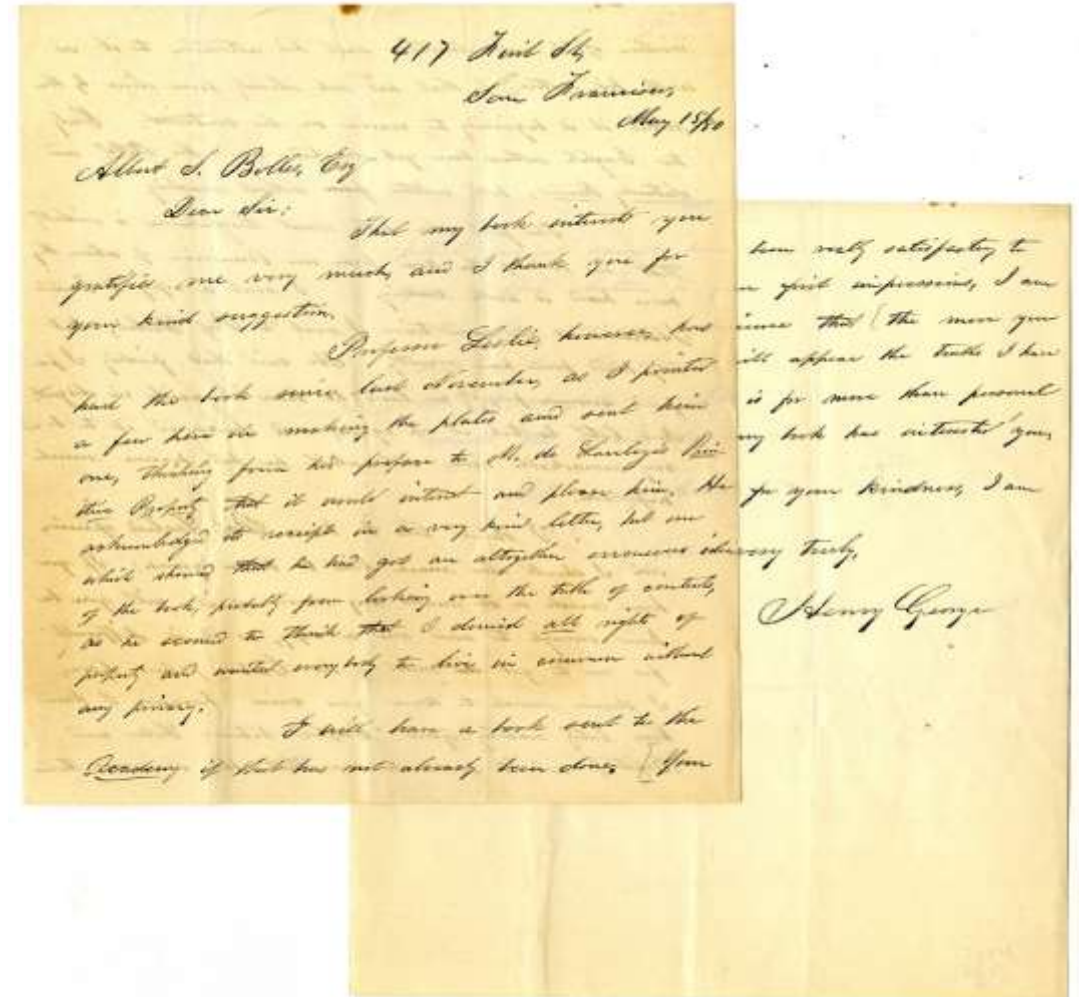 417 First St,
San Francisco,
May 15/80
Albert S. Bolles, Esq
Dear Sir:
That my book interests you
gratifies me very much, and I thank you for
your kind suggestion.
Professor Leslie, however, has
had the book since last November, as I printed
a few here in making the plates and sent him
one, thinking from his preface to M. de Laveleye's Prim-
itive Property that it would interest and please him. He
acknowledged its receipt in a very kind letter, but one
which showed that he had got an altogether erroneous idea
of the book, probably from looking over the table of contents,
as he seemed to think that I denied all rights of
property and wanted everybody to live in common without
any privacy.
I will have a book sent to the
Academy if that has not already been done. Your
been really satisfactory to
first impressions, I am
that (the more you
will appear the truths I have
is far more than personal
my book has interested you,
for your kindness, I am
very truly,
Henry George